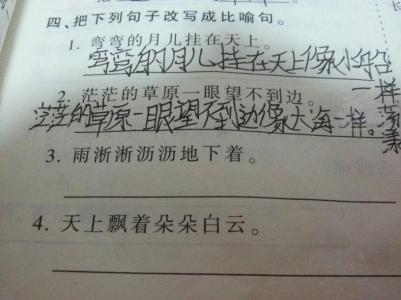 四、把下列句子改写成比喻句。
1. 弯弯的月儿挂在天上。
弯弯的月儿挂在天上像小船一样
2. 茫茫的草原一眼望不到边。
茫茫的草原一眼望不到边像大海一样。
3. 雨淅淅沥沥地下着。
4. 天上飘着朵朵白云。